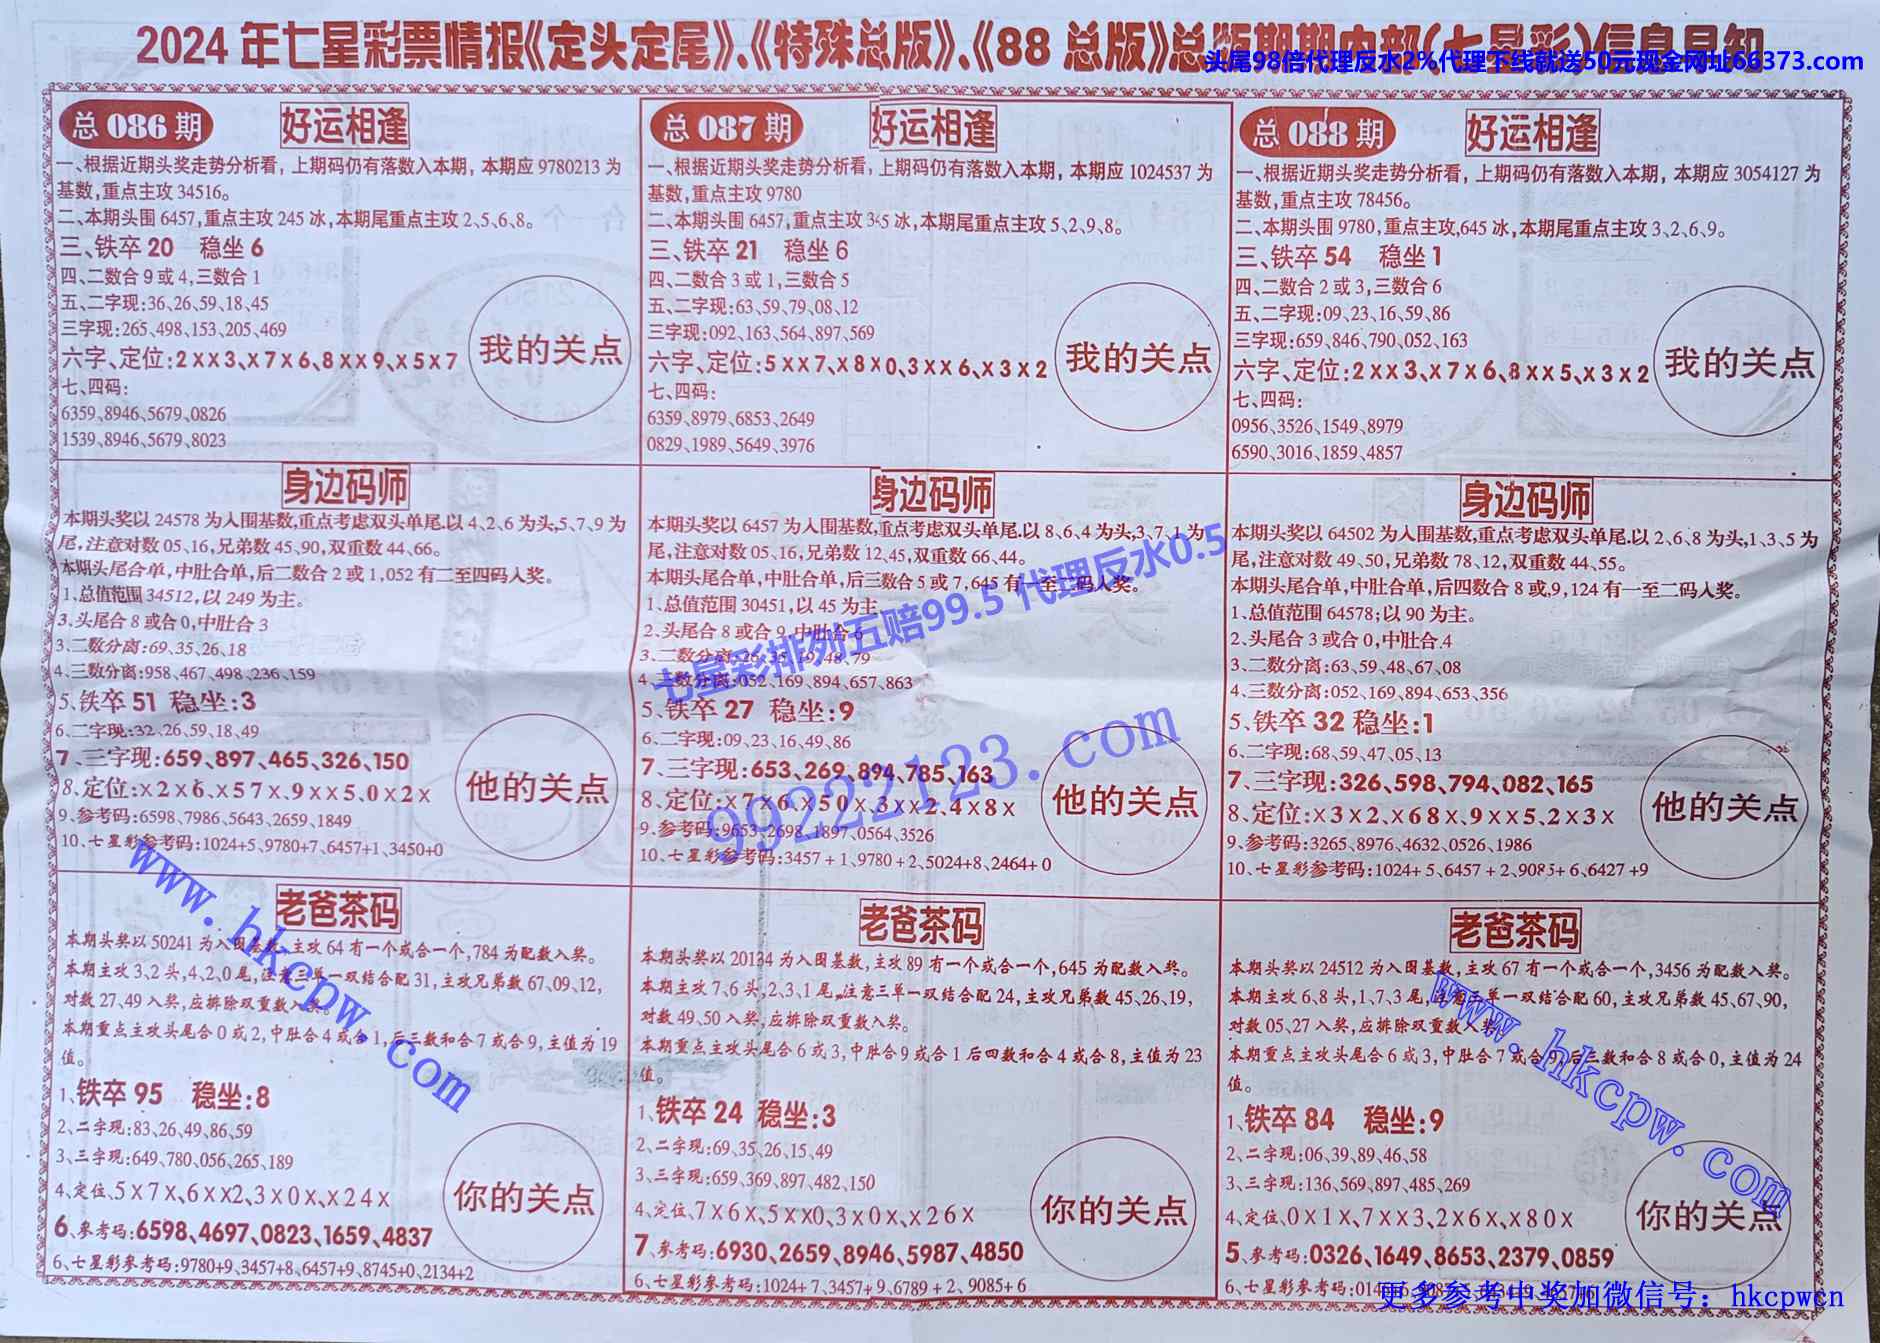 2024年七星彩票情报《定头定尾》、《特殊总版》、《88总版》总版期期内部(七星彩)信息早知
头尾98倍代理反水2%代理下线就送50元现金网址66373.com
总 086 期
好运相逢
一、根据近期头奖走势分析看，上期码仍有落数入本期，本期应 9780213 为
基数,重点主攻 34516。
二、本期头围 6457,重点主攻 245 冰,本期尾重点主攻 2、5、6、8。
三、铁卒 20 稳坐 6
四、二数合 9 或 4,三数合 1
五、二字现:36、26、59、18、45
三字现:265、498、153、205、469
六字、定位:2××3、×7×6、8××9、×5×7
我的关点
七、四码:
6359、8946、5679、0826
1539、8946、5679、8023
总 087 期
好运相逢
一、根据近期头奖走势分析看，上期码仍有落数入本期，本期应 1024537 为
基数,重点主攻 9780
二、本期头围 6457,重点主攻 345 冰,本期尾重点主攻 5、2、9、8。
三、铁卒 21 稳坐 6
四、二数合 3 或 1,三数合 5
五、二字现:63、59、79、08、12
三字现:092、163、564、897、569
六字、定位:5××7、×8×0、3××6、×3×2
我的关点
七、四码:
6359、8979、6853、2649
0829、1989、5649、3976
总 088 期
好运相逢
一、根据近期头奖走势分析看，上期码仍有落数入本期，本期应 3054127 为
基数,重点主攻 78456。
二、本期头围 9780,重点主攻,645 冰,本期尾重点主攻 3、2、6、9。
三、铁卒 54 稳坐 1
四、二数合 2 或 3,三数合 6
五、二字现:09、23、16、59、86
三字现:659、846、790、052、163
六字、定位:2××3、×7×6、8××5、×3×2
我的关点
七、四码:
0956、3526、1549、8979
6590、3016、1859、4857
身边码师
本期头奖以 24578 为入围基数,重点考虑双头单尾.以 4、2、6 为头,5、7、9 为
尾,注意对数 05、16,兄弟数 45、90,双重数 44、66。
本期头尾合单,中肚合单,后二数合 2 或 1,052 有二至四码入奖。
1、总值范围 34512,以 249 为主。
3、头尾合 8 或合 0,中肚合 3
3、二数分离:69、35、26、18
4、三数分离:958、467、498、236、159
5、铁卒 51 稳坐:3
6、二字现:32、26、59、18、49
7、三字现:659、897、465、326、150
8、定位:×2×6、×57×、9××5、0×2×
9、参考码:6598、7986、5643、2659、1849
10、七星彩参考码:1024+5、9780+7、6457+1、3450+0
他的关点
身边码师
本期头奖以 6457 为入围基数,重点考虑双头单尾.以 8、6、4 为头,3、7、1 为
尾,注意对数 05、16,兄弟数 12、45,双重数 66、44。
本期头尾合单,中肚合单,后三数合 5 或 7,645 有一至二码入奖。
1、总值范围 30451,以 45 为主
2、头尾合 8 或合 9,中肚合 6
3、二数分离:26、35、19、48、79
4、三数分离:052、169、894、657、863
5、铁卒 27 稳坐:9
6、二字现:09、23、16、49、86
7、三字现:653、269、894、785、163
8、定位:×7×6、×50×、3××2、4×8×
9、参考码:9653、2698、1897、0564、3526
10、七星彩参考码:3457+1、9780+2、5024+8、2464+0
他的关点
身边码师
本期头奖以 64502 为入围基数,重点考虑双头单尾.以 2、6、8 为头,1、3、5 为
尾,注意对数 49、50,兄弟数 78、12,双重数 44、55。
本期头尾合单,中肚合单,后四数合 8 或,9,124 有一至二码入奖。
1、总值范围 64578;以 90 为主。
2、头尾合 3 或合 0,中肚合.4
3、二数分离:63、59、48、67、08
4、三数分离:052、169、894、653、356
5、铁卒 32 稳坐:1
6、二字现:68、59、47、05、13
7、三字现:326、598、794、082、165
8、定位:×3×2、×68×、9××5、2×3×
9、参考码:3265、8976、4632、0526、1986
10、七星彩参考码:1024+5、6457+2、9085+6、6427+9
他的关点
七星彩排列五赔99.5 代理反水0.5
99222123.com
老爸茶码
本期头奖以 50241 为入围基数,主攻 64 有一个或合一个,784 为配数入奖。
本期主攻 3、2 头,4、2、0 尾,注意三单一双结合配 31,主攻兄弟数 67、09、12,
对数 27、49 入奖,应排除双重数入奖。
本期重点主攻头尾合 0 或 2,中肚合 4 或合 1,后三数和合 7 或合 9,主值为 19
值。
1、铁卒 95 稳坐:8
2、二字现:83、26、49、86、59
3、三字现:649、780、056、265、189
4、定位、5×7×、6××2、3×0×、×24×
6、参考码:6598、4697、0823、1659、4837
6、七星彩参考码:9780+9、3457+8、6457+9、8745+0、2134+2
你的关点
老爸茶码
本期头奖以 20134 为入围基数,主攻 89 有一个或合一个,645 为配数入奖。
本期主攻 7、6 头,2、3、1 尾,注意三单一双结合配 24,主攻兄弟数 45、26、19,
对数 49、50 入奖,应排除双重数入奖。
本期重点主攻头尾合 6 或 3,中肚合 9 或合 1 后四数和合 4 或合 8,主值为 23
值。
1、铁卒 24 稳坐:3
2、二字现:69、35、26、15、49
3、三字现:659、369、897、482、150
4、定位、7×6×、5××0、3×0×、×26×
7、参考码:6930、2659、8946、5987、4850
6、七星彩参考码:1024+7、3457+9、6789+2、9085+6
你的关点
老爸茶码
本期头奖以 24512 为入围基数,主攻 67 有一个或合一个,3456 为配数入奖。
本期主攻 6、8 头,1、7、3 尾,注意三单一双结合配 60,主攻兄弟数 45、67、90,
对数 05、27 入奖,应排除双重数入奖
本期重点主攻头尾合 6 或 3,中肚合 7 或合 9,后三数和合 8 或合 0,主值为 24
值。
1、铁卒 84 稳坐:9
2、二字现:06、39、89、46、58
3、三字现:136、569、897、485、269
4、定位、0×1×、7××3、2×6×、×80×
5、参考码:0326、1649、8653、2379、0859
6、七星彩参考码:
你的关点
www.hkcpw.com
www.hkcpw.com
更多参考中奖加微信号：hkcpwcn